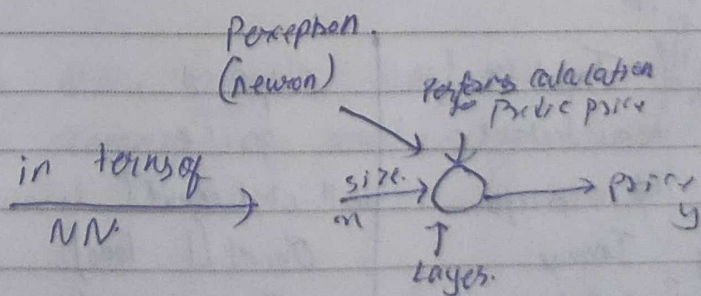 Perceptron.
(neuron)
Performs calculation
to Predic price
in terms of
NN.
size.
x
price
y
Layer.